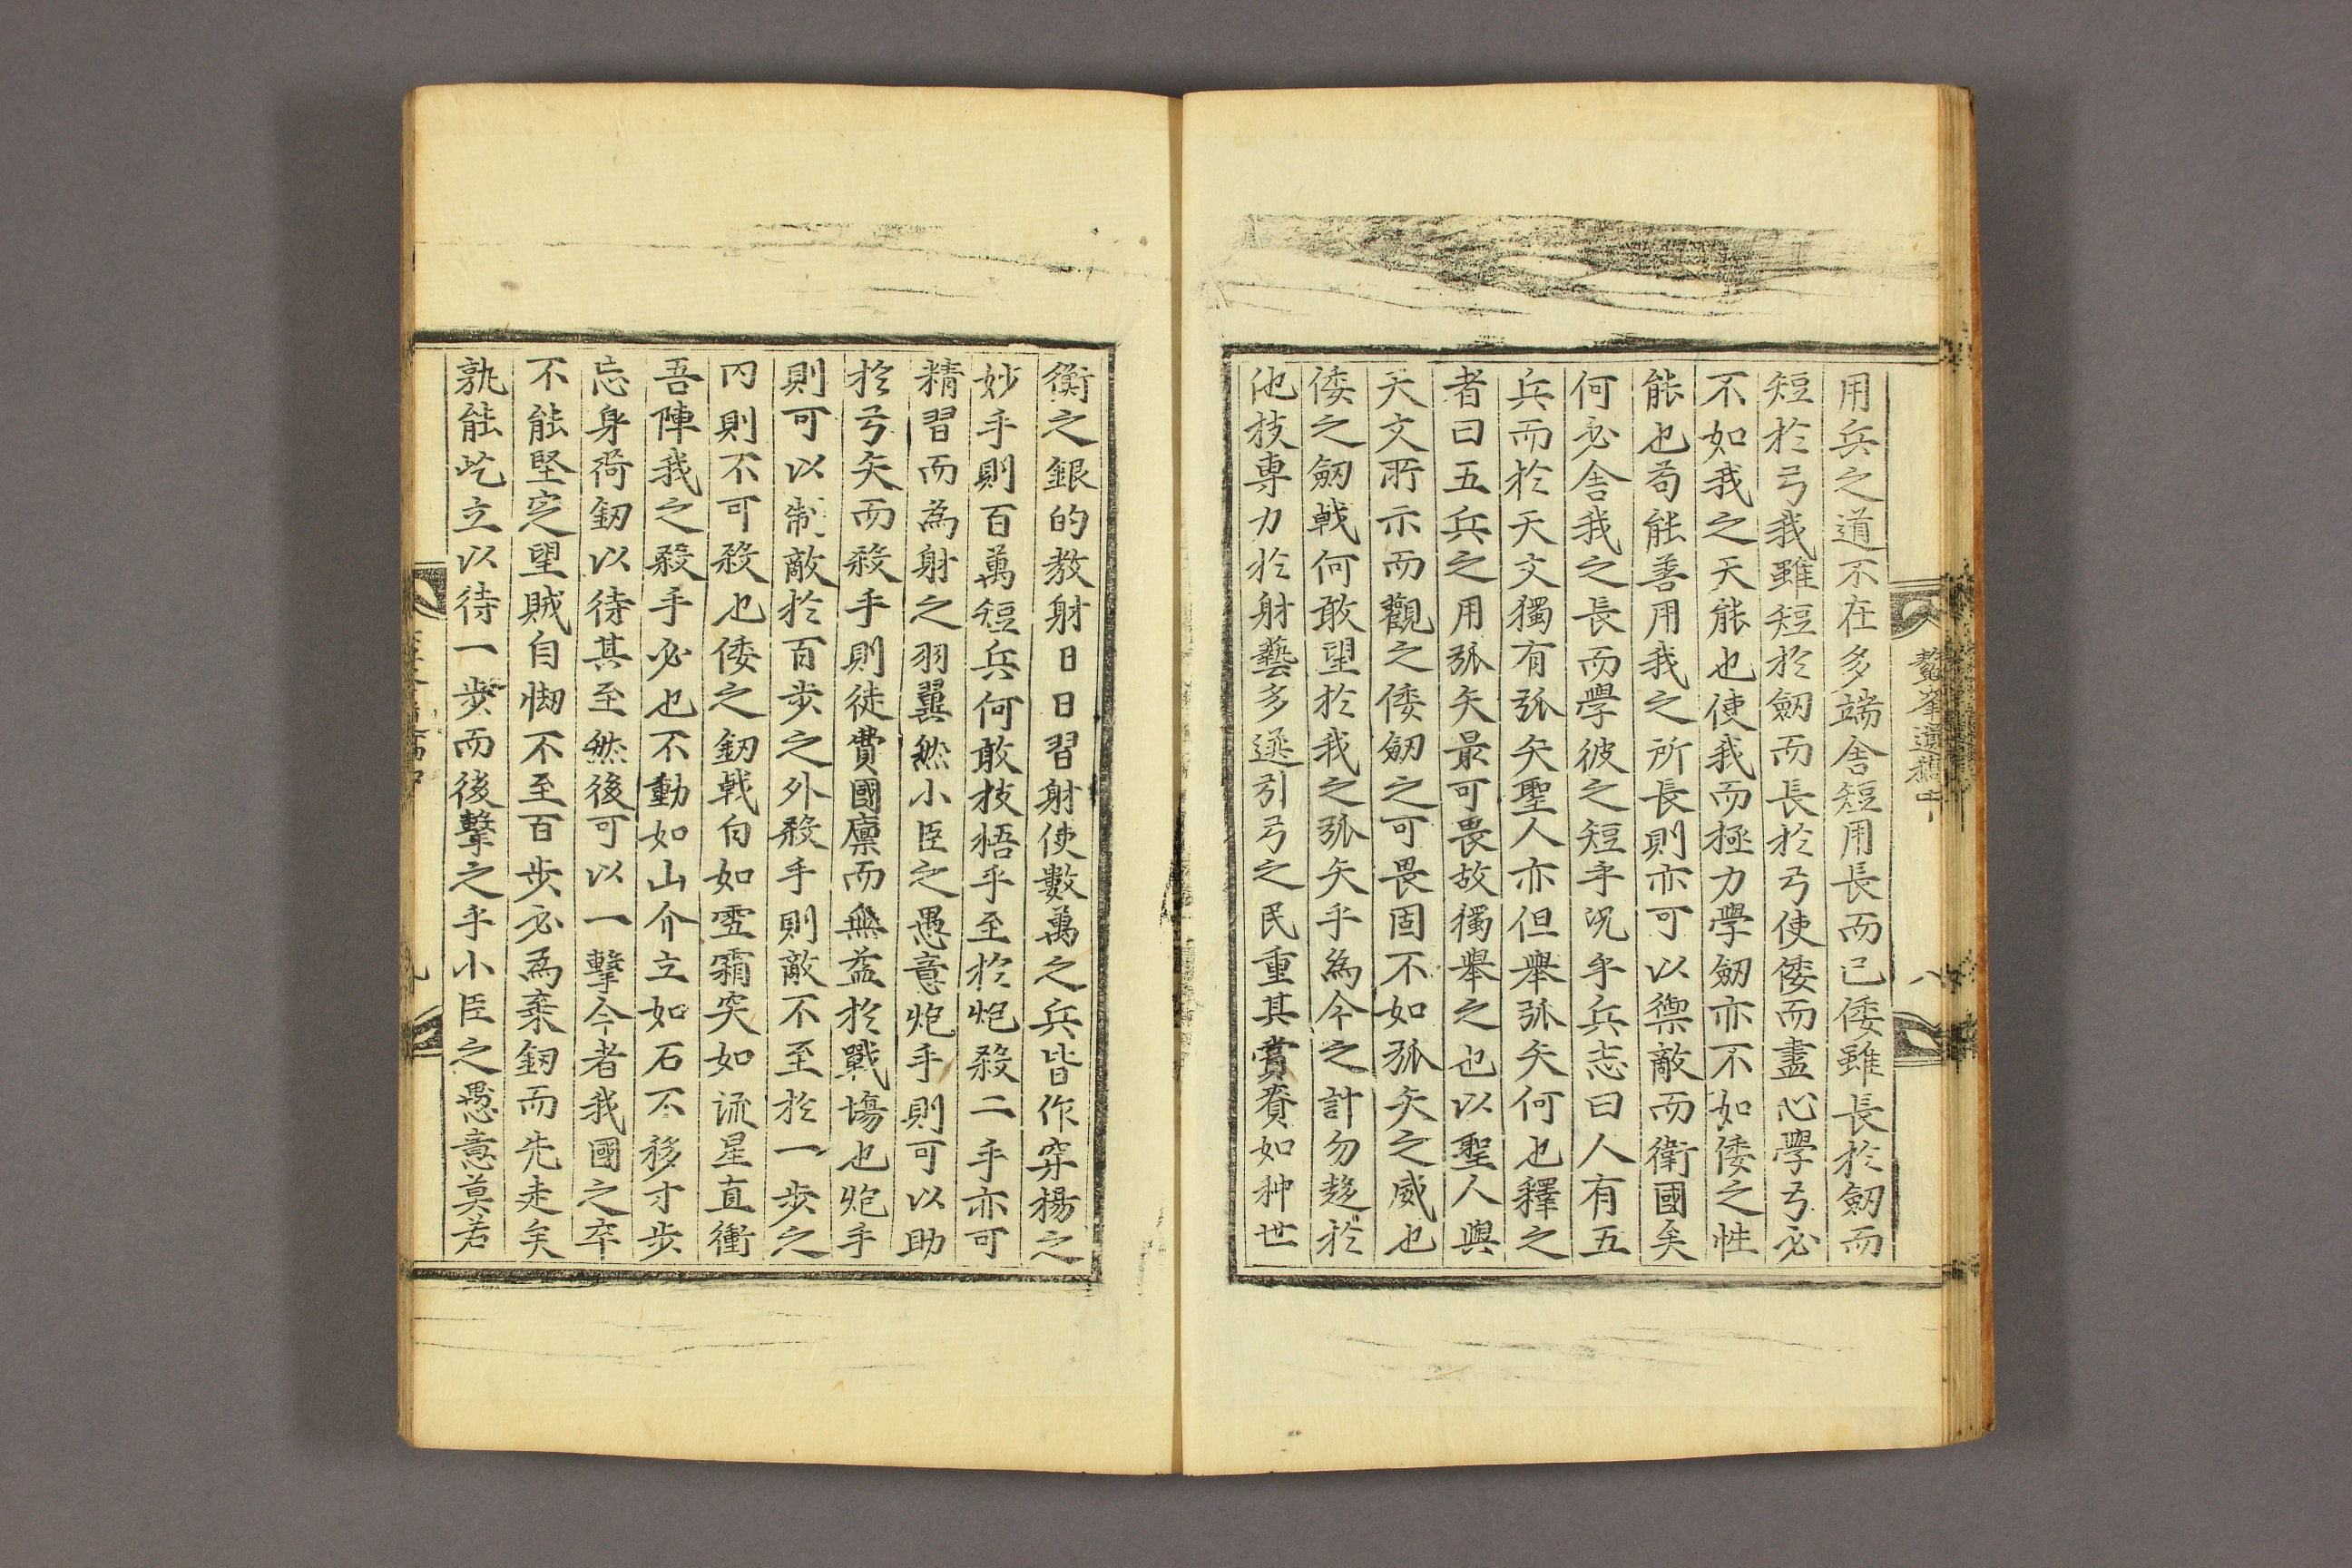 用兵之道不在多端舍短用長而已倭雖長於劒而
短於弓我雖短於劒而長於弓使倭而盡心學弓必
不如我之天能也使我而極力學劒亦不如倭之性
能也苟能善用我之所長則亦可以禦敵而衛國矣
何必舍我之長而學彼之短乎况乎兵志曰人有五
兵而於天文獨有弧矢聖人亦但舉弧矢何也釋之
者曰五兵之用弧矢最可畏故獨舉之也以聖人與
天文所示而觀之倭劒之可畏固不如弧矢之威也
倭之劒戟何敢望於我之弧矢乎為今之計勿趍於
他技專力於射藝多選引弓之民重其賞賚如种世
衡之銀的教射日日習射使數萬之兵皆作穿楊之
妙手則百萬短兵何敢枝梧乎至於炮殺二手亦可
精習而為射之羽翼然小臣之愚意炮手則可以助
於弓矢而殺手則徒費國廪而無益於戰塲也炮手
則可以制敵於百步之外殺手則敵不至於一步之
內則不可殺也倭之釰戟白如雪霜突如流星直衝
吾陣我之殺手必也不動如山介立如石不移寸步
忘身荷釰以待其至然後可以一擊今者我國之卒
不能堅定望賊自㤼不至百步必為棄釰而先走矣
孰能屹立以待一步而後擊之乎小臣之愚意莫若
鰲峯遺稿中
八